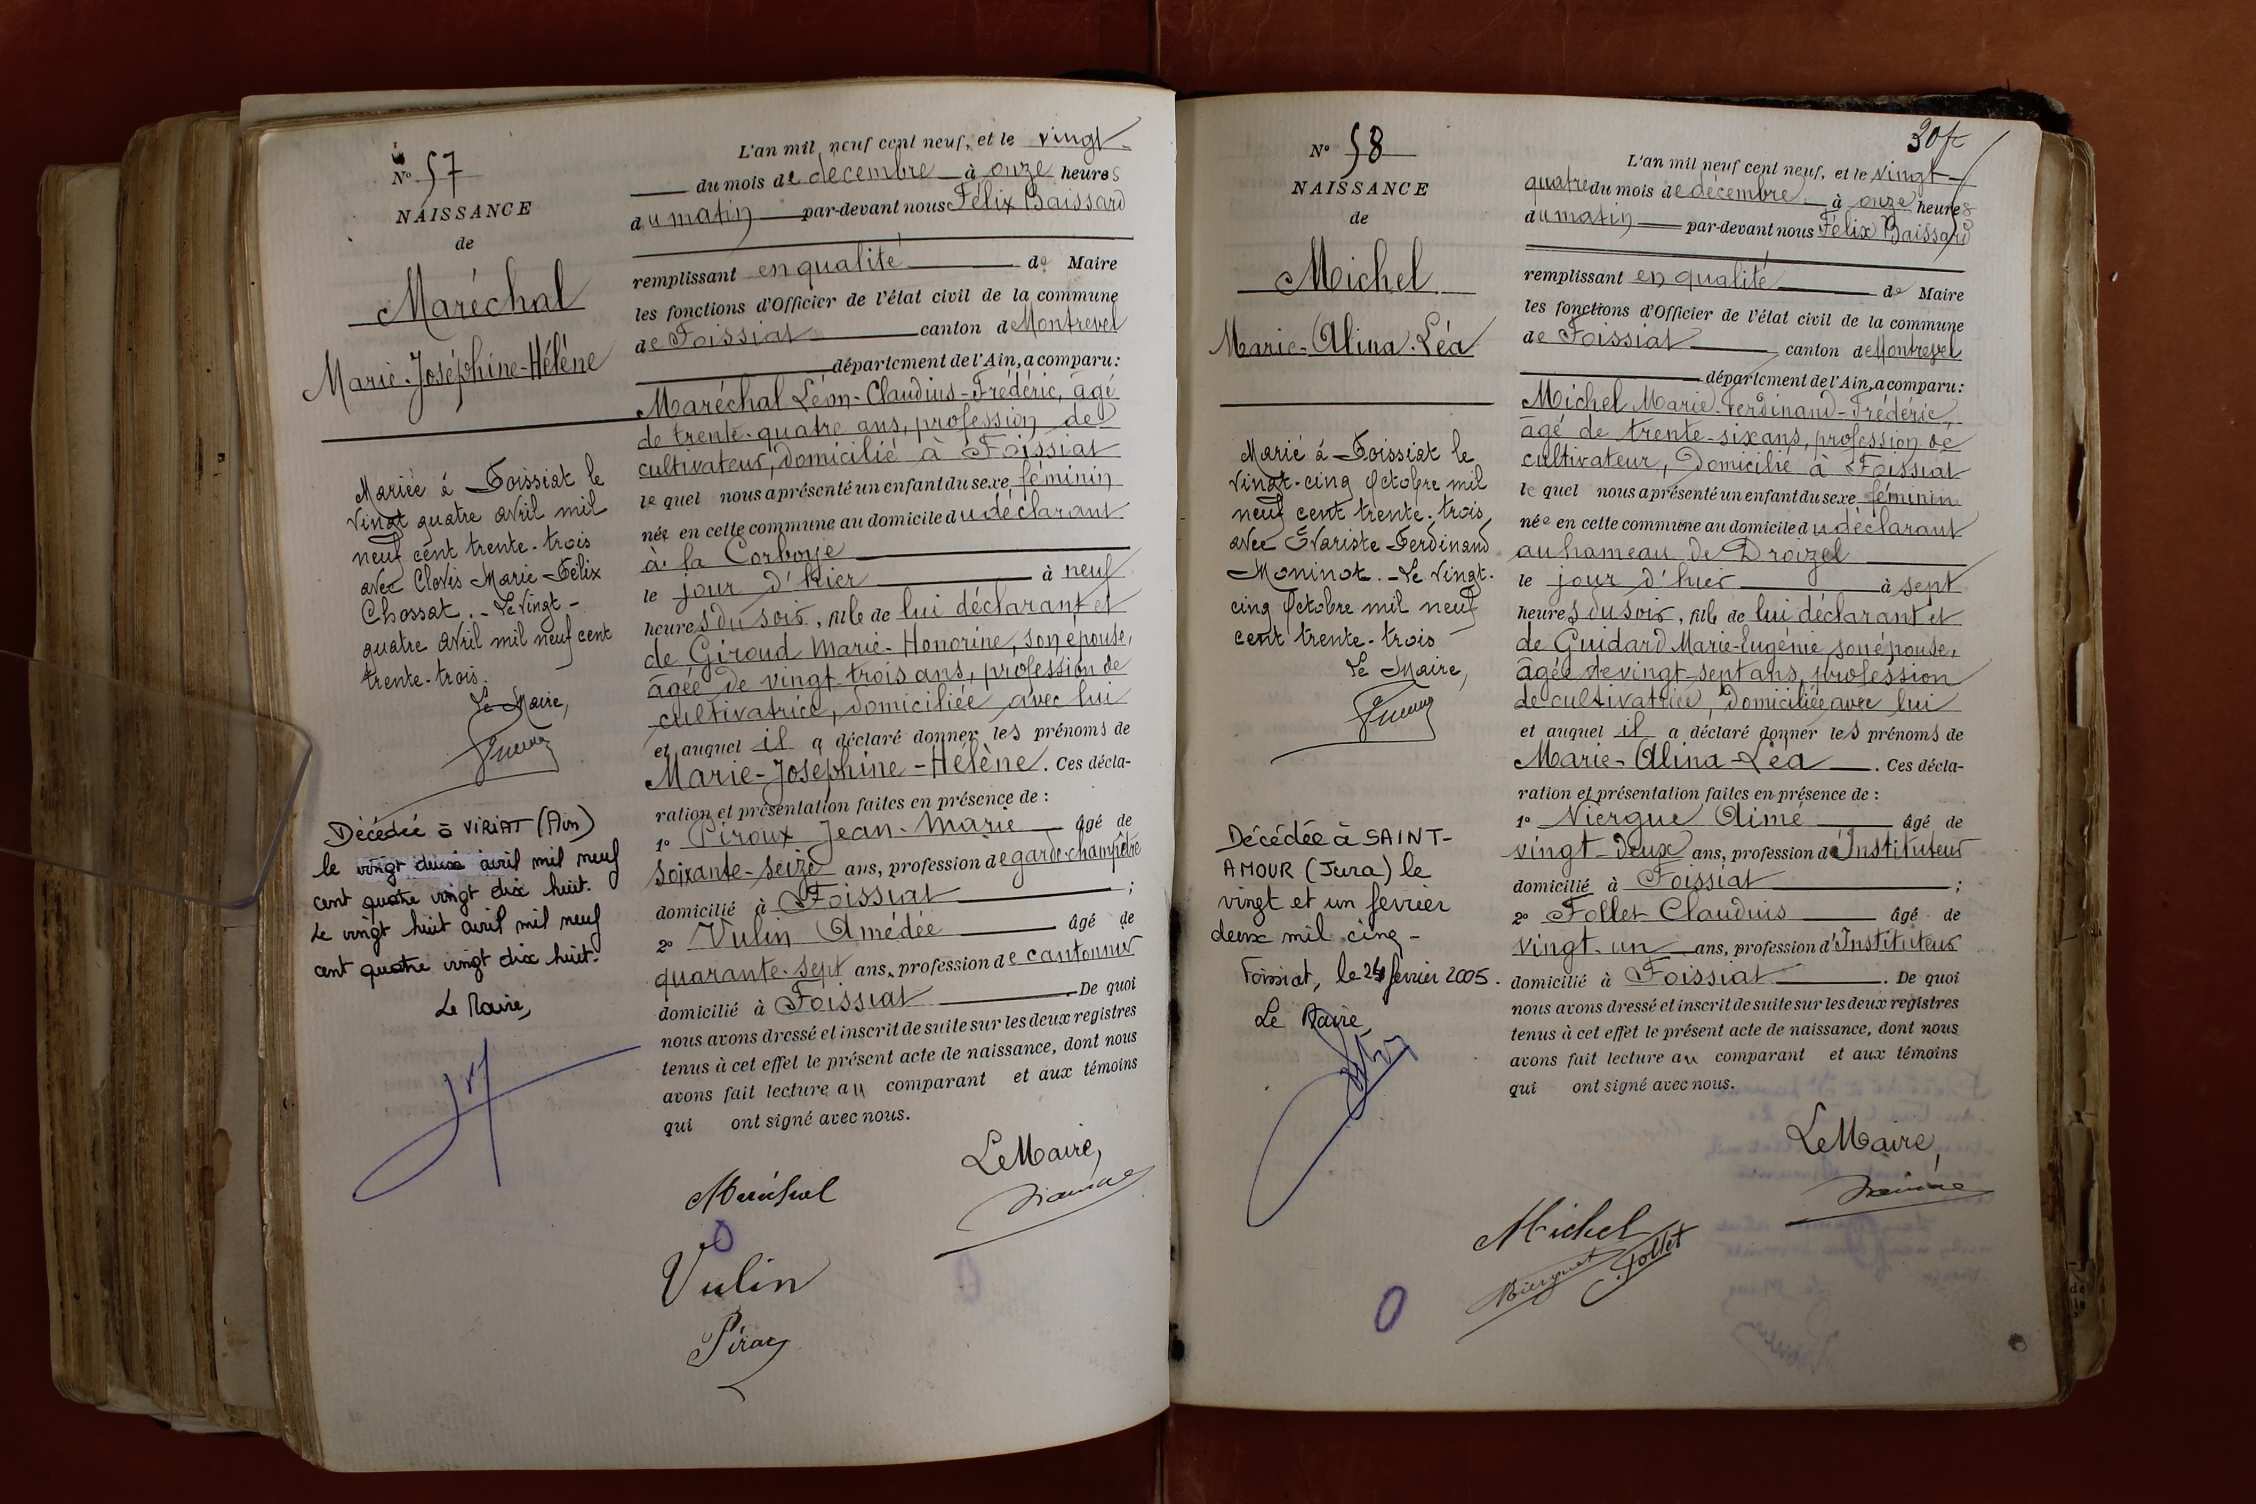 N° 57
NAISSANCE
de
Maréchal
Marie-Joséphine-Hélène
Mariée à Foissiat le
vingt quatre avril mil
neuf cent trente-trois
avec Clovis Marie-Félix
Chossat. - Le vingt-
quatre avril mil neuf cent
trente-trois.
Le Maire,
Décédée à VIRIAT (Ain)
le vingt deux avril mil neuf
cent quatre vingt dix huit.
Le vingt huit avril mil neuf
cent quatre vingt dix huit.
Le Maire,
L'an mil neuf cent neuf, et le vingt
du mois de décembre à onze heures
du matin par-devant nous Félix Baissard
remplissant en qualité de Maire
les fonctions d'Officier de l'état civil de la commune
de Foissiat canton de Montrevel
département de l'Ain, a comparu:
Maréchal Léon-Claudius-Frédéric, âgé
de trente-quatre ans, profession de
cultivateur, domicilié à Foissiat
le quel nous a présenté un enfant du sexe féminin
née en cette commune au domicile du déclarant
à la Corboye
le jour d'hier à neuf
heures du soir, fille de lui déclarant et
de Giroud Marie-Honorine, son épouse,
âgée de vingt-trois ans, profession de
cultivatrice, domiciliée avec lui
et auquel il a déclaré donner les prénoms de
Marie-Joséphine-Hélène. Ces décla-
ration et présentation faites en présence de :
1° Piroux Jean-Marie âgé de
soixante-seize ans, profession de garde-champêtre
domicilié à Foissiat ;
2° Vulin Amédée âgé de
quarante-sept ans, profession de cantonnier
domicilié à Foissiat De quoi
nous avons dressé et inscrit de suite sur les deux registres
tenus à cet effet le présent acte de naissance, dont nous
avons fait lecture au comparant et aux témoins
qui ont signé avec nous.
Le Maire,
Maréchal
Vulin
N° 58
NAISSANCE
de
Michel
Marie-Alina-Léa
Marié à Foissiat le
vingt-cinq Octobre mil
neuf cent trente-trois
avec Evariste Ferdinand
Moninot. - Le vingt-
cinq Octobre mil neuf
cent trente-trois
Le Maire,
Décédée à SAINT-
AMOUR (Jura) le
vingt et un fevrier
deux mil cinq -
Foissiat, le 24 fevrier 2005.
Le Maire,
L'an mil neuf cent neuf, et le vingt-
quatre du mois de décembre à onze heures
du matin par-devant nous Félix Baissard
remplissant en qualité de Maire
les fonctions d'Officier de l'état civil de la commune
de Foissiat canton de Montrevel
département de l'Ain, a comparu:
Michel Marie-Ferdinand-Frédéric,
âgé de trente-six ans, profession de
cultivateur, domicilié à Foissiat
le quel nous a présenté un enfant du sexe féminin
née en cette commune au domicile du déclarant
au hameau de Droizel
le jour d'hier à sept
heures du soir, fille de lui déclarant et
de Guidard Marie-Eugénie son épouse,
âgée de vingt-sept ans, profession
de cultivatrice, domiciliée avec lui
et auquel il a déclaré donner les prénoms de
Marie-Alina-Léa. Ces décla-
ration et présentation faites en présence de :
1° Viergue Aimé âgé de
vingt-deux ans, profession d'Instituteur
domicilié à Foissiat ;
2° Follet Claudius âgé de
vingt-un ans, profession d'Instituteur
domicilié à Foissiat. De quoi
nous avons dressé et inscrit de suite sur les deux registres
tenus à cet effet le présent acte de naissance, dont nous
avons fait lecture au comparant et aux témoins
qui ont signé avec nous.
Le Maire,
Michel
Follet